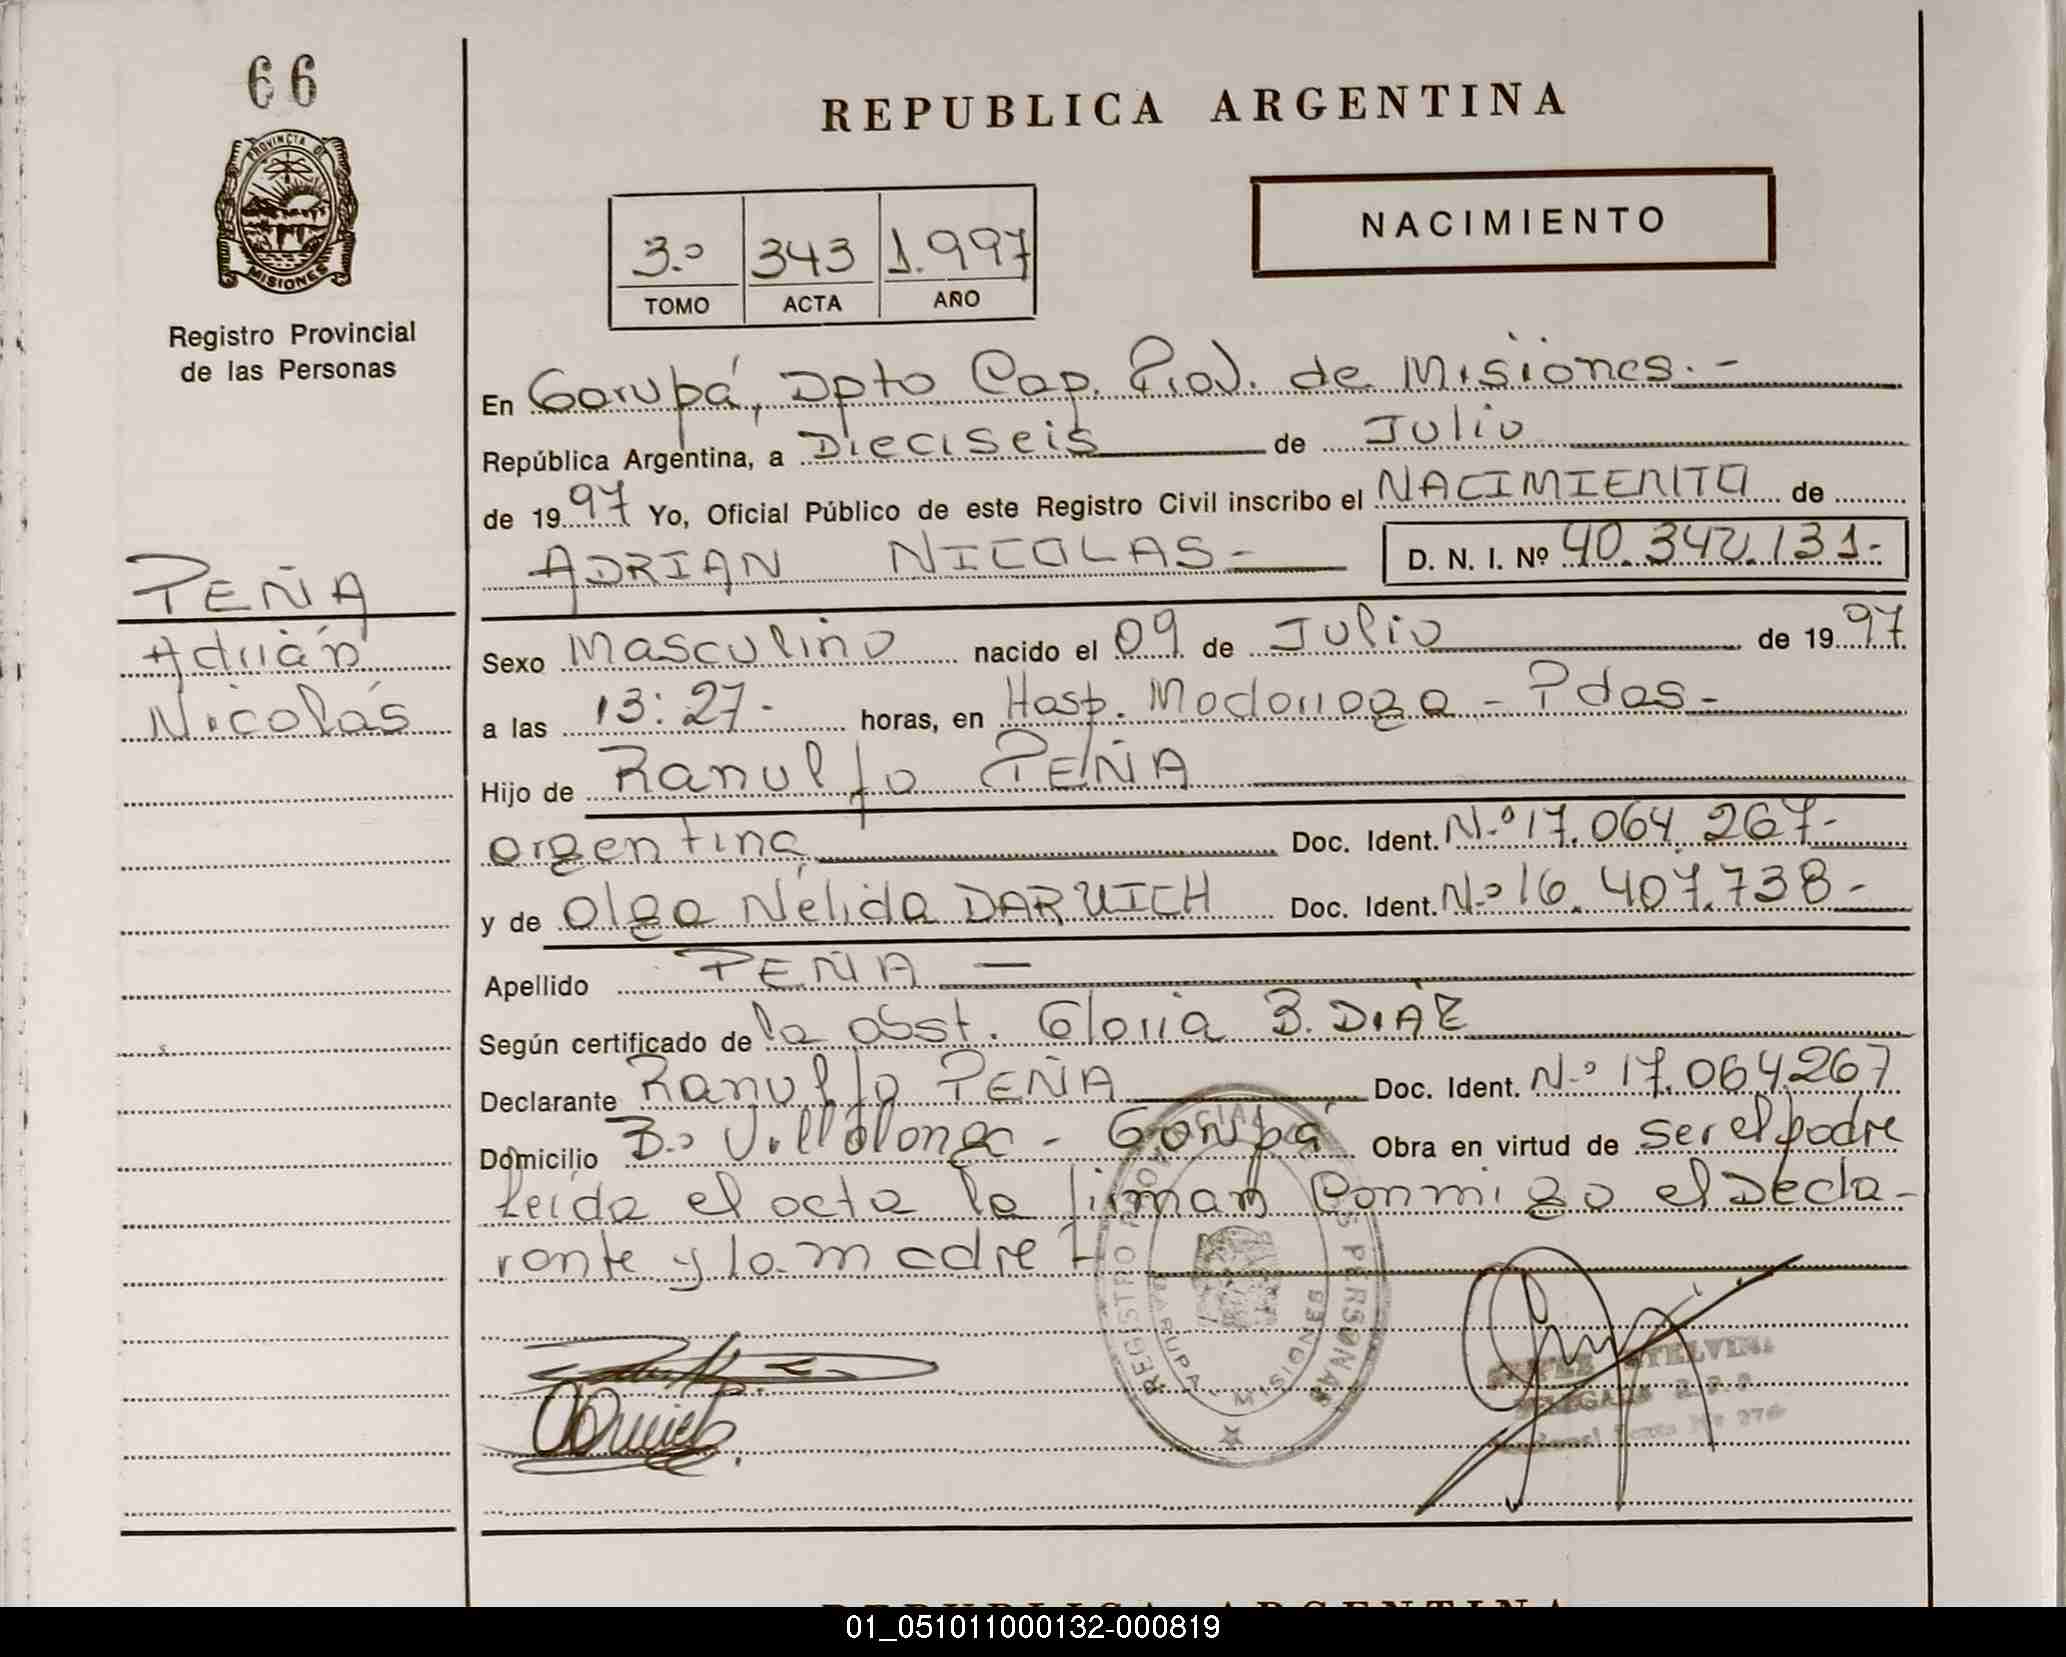 66
PROVINCIA DE
MISIONES
Registro Provincial
de las Personas
REPUBLICA ARGENTINA
NACIMIENTO
3.º 343 1.997
TOMO ACTA AÑO
En Garupá, Dpto Cap. Prov. de Misiones.-
República Argentina, a Dieciseis de Julio
de 1997 Yo, Oficial Público de este Registro Civil inscribo el NACIMIENTO de
ADRIAN NICOLAS- D. N. I. Nº 40.342.131.-
PEÑA
Adrián
Nicolás
Sexo Masculino nacido el 09 de Julio de 1997
a las 13:27.- horas, en Hosp. Madariaga - Pdas-
Hijo de Ranulfo PEÑA
argentina Doc. Ident. N.º 17.064.267-
y de Olga Nélida DARUICH Doc. Ident. N.º 16.407.738-
Apellido PEÑA —
Según certificado de la obst. Gloria B. DIAZ
Declarante Ranulfo PEÑA Doc. Ident. N.º 17.064.267
Domicilio B.º Villalonga - Garupá Obra en virtud de ser el padre
Leída el acta la firman conmigo el decla-
rante y la madre
REGISTRO PERSONAS
GARUPA - MISIONES
REPUBLICA ARGENTINA
01_051011000132-000819